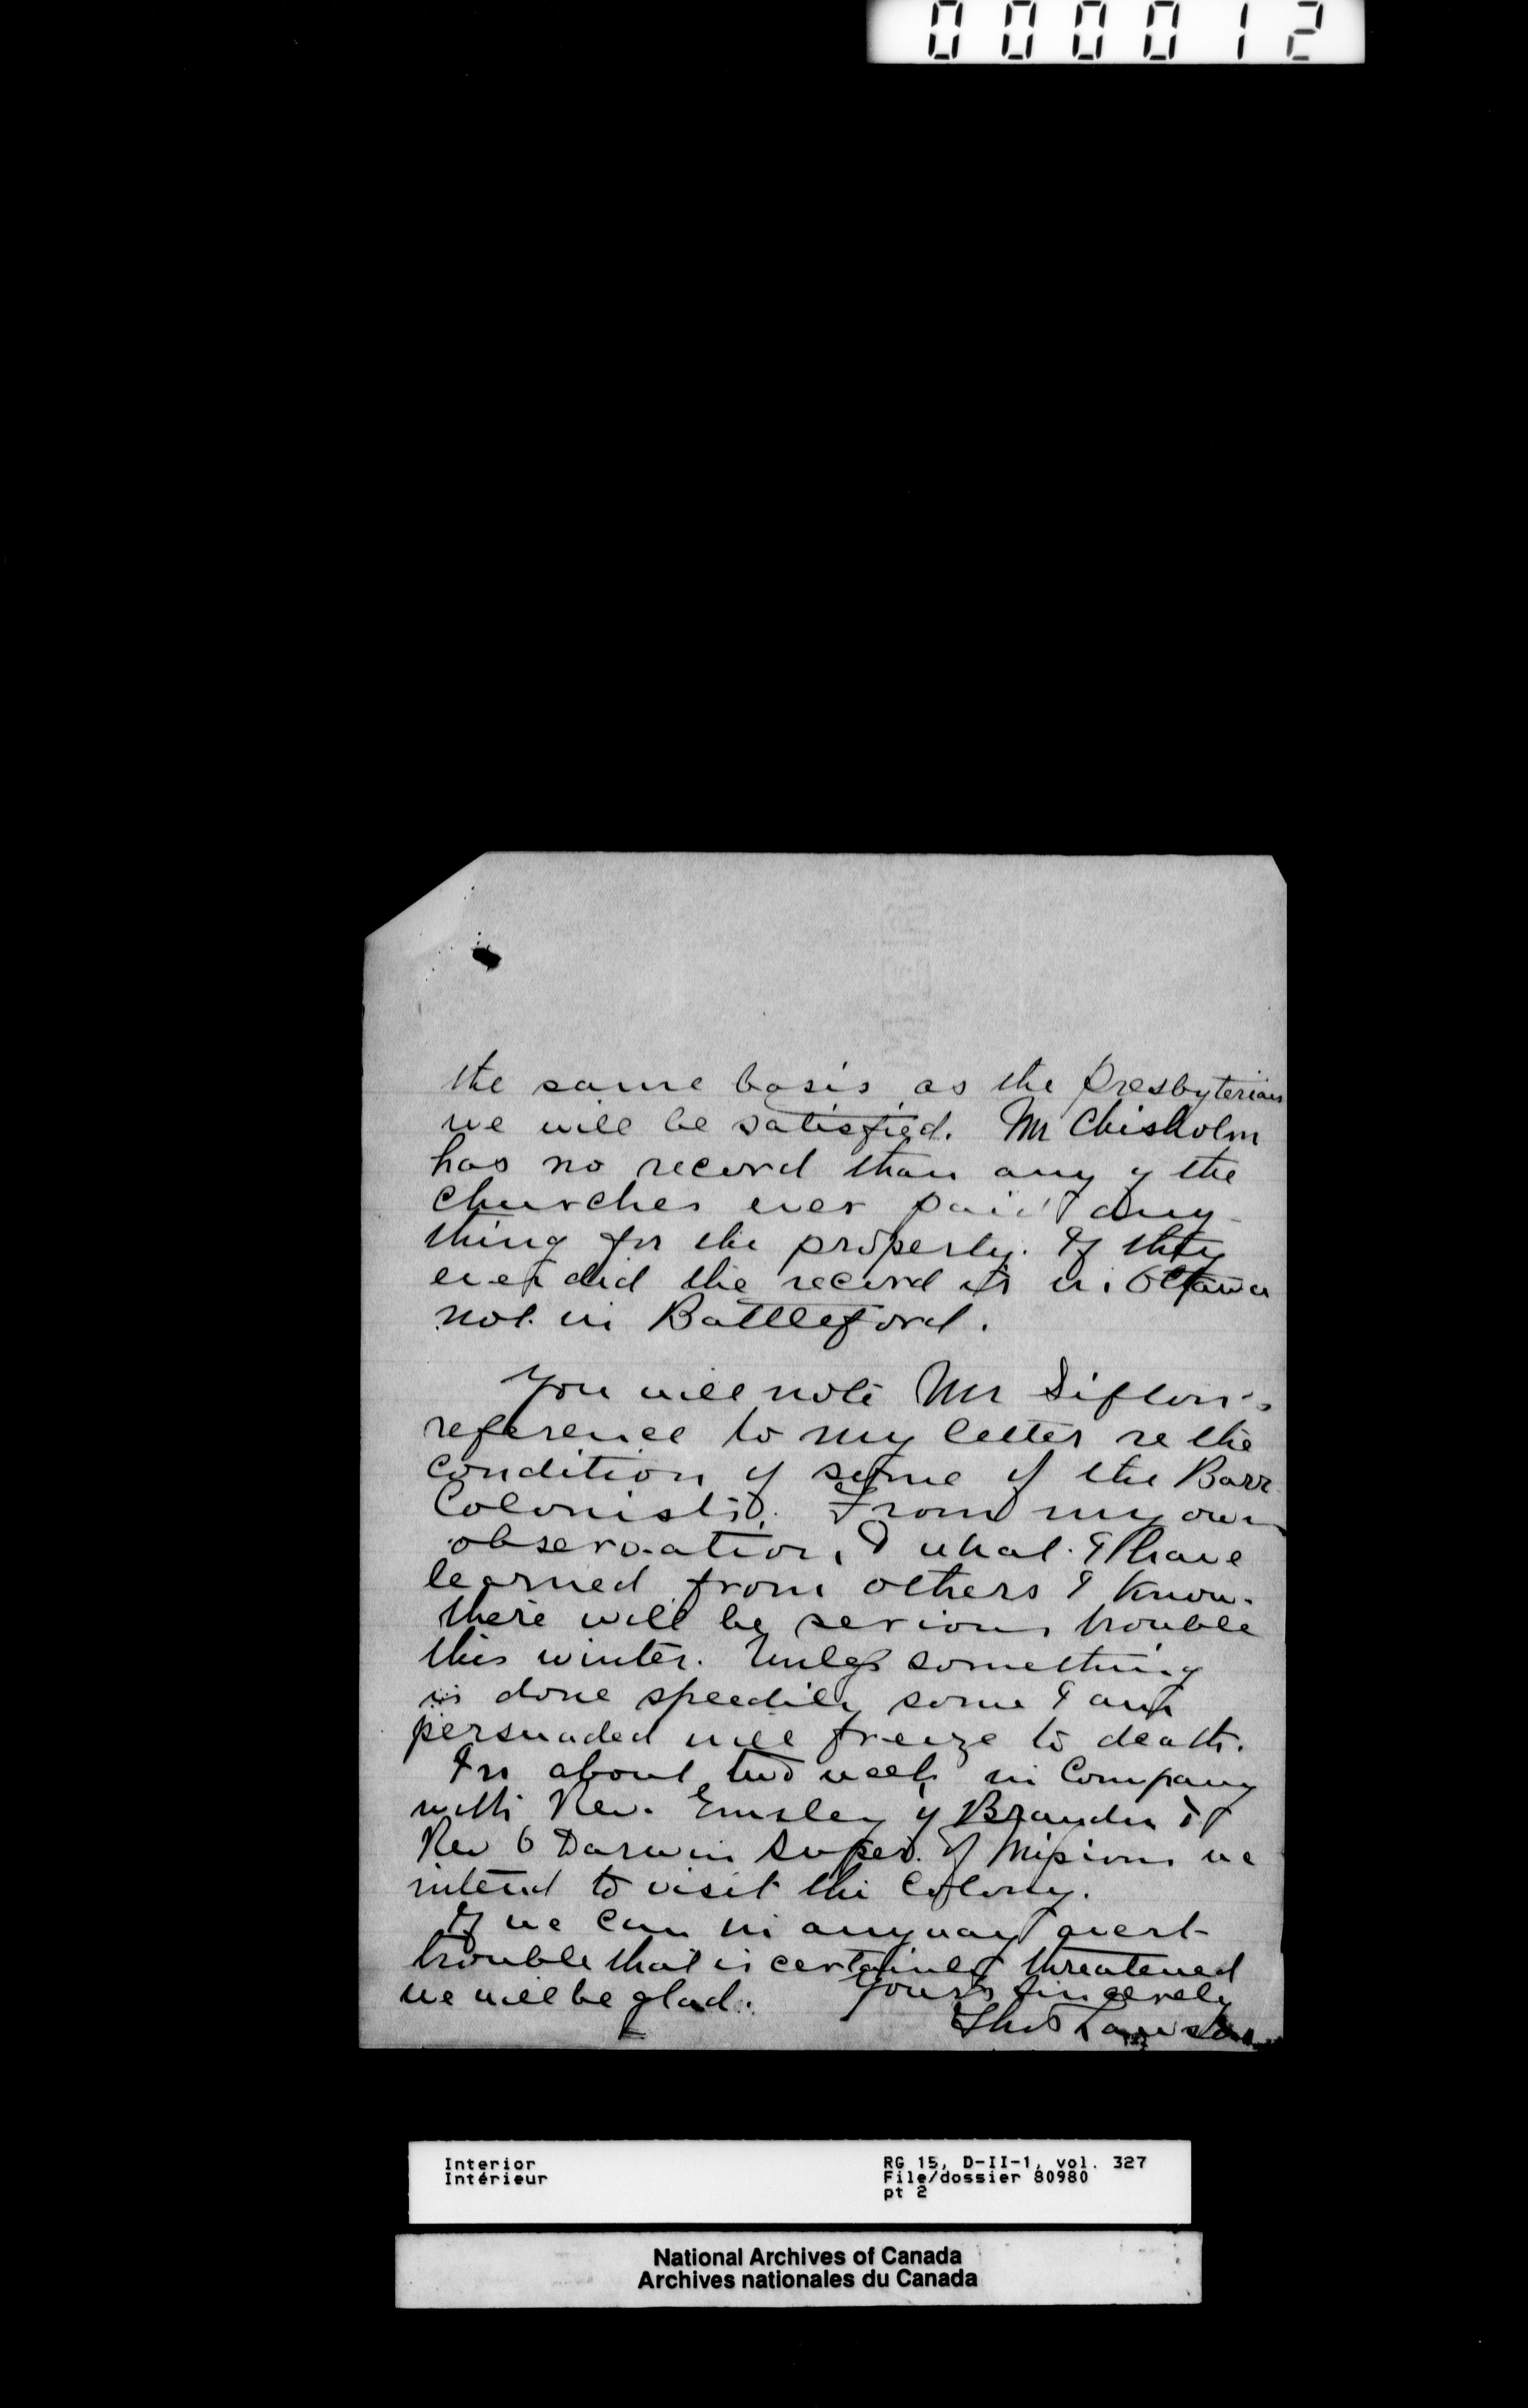 000012
the same basis as the Presbyterians
we will be satisfied. Mr Chisholm
has no record than any of the
churches ever paid any-
thing for the property. If they
ever did the record is in Ottawa
not in Battleford.
You will note Mr Sifton's
reference to my letter re the
condition of some of the Barr
Colonists. From my own
observation, & what I have
learned from others I know
there will be serious trouble
this winter. Unless something
is done speedily some I am
persuaded will freeze to death.
In about two weeks in Company
with Rev. Emsley of Brandon &
Rev O Darwin Super. of Missions we
intend to visit the Colony.
If we can in anyway avert
trouble that is certainly threatened
we will be glad. Yours sincerely
Thos Lawson
Interior
Intérieur
RG 15, D-II-1, vol. 327
File/dossier 80980
pt 2
National Archives of Canada
Archives nationales du Canada